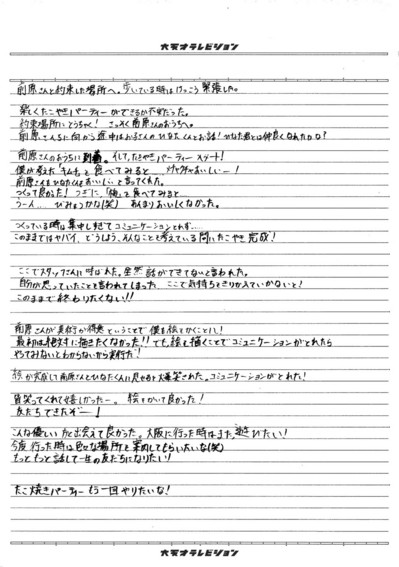 大阪チャンテレビジョン
前原さんと約束した場所へ。歩いている時はけっこう緊張した。
楽しくたこやきパーティーができるか不安だった。
約束場所にとうちゃく! さっそく前原さんのおうちへ。
前原さんちに向かう途中はお子さんのひなたくんとお話!ひなた君とは仲良くなれたかな?
前原さんのおうちに到着。そしてたこやきパーティースタート!
僕が考えた「キムチ」を食べてみると…
前原さんもひなたくんもおいしいと言ってくれた。
つくって良かった! つぎに、「梅」を食べてみると…
うーん… びみょうかな(笑) あんまりおいしくなかった。
つくっている時は集中しすぎてコミュニケーションとれず…
このままではヤバイ、どうしよう、そんなことを考えている間にたこやき完成!
ここでスタッフさんに呼ばれた。全然話ができてないと言われた。
自分が思っていたことを言われてしまった ここで気持ちをきりかえていかないと?
このままで終わりたくない!!
前原さんが美術が得意ということで僕も絵をかくことに!
最初は絶対に描きたくなかった!! でも、絵を描くことでコミュニケーションがとれたら
やってみないとわからないから実行だ!
絵が完成して前原さんとひなたくんに見せると大爆笑された。コミュニケーションがとれた!
皆笑ってくれて嬉しかったー。 絵をかいて良かった!
友だちできたぞー!
こんな優しい方と出会えて良かった。大阪に行った時はまた遊びたい!
今度行った時は色々な場所を案内してもらいたいな(笑)
もっともっと話して一生の友だちになりたい!
たこ焼きパーティーもう一回やりたいな!